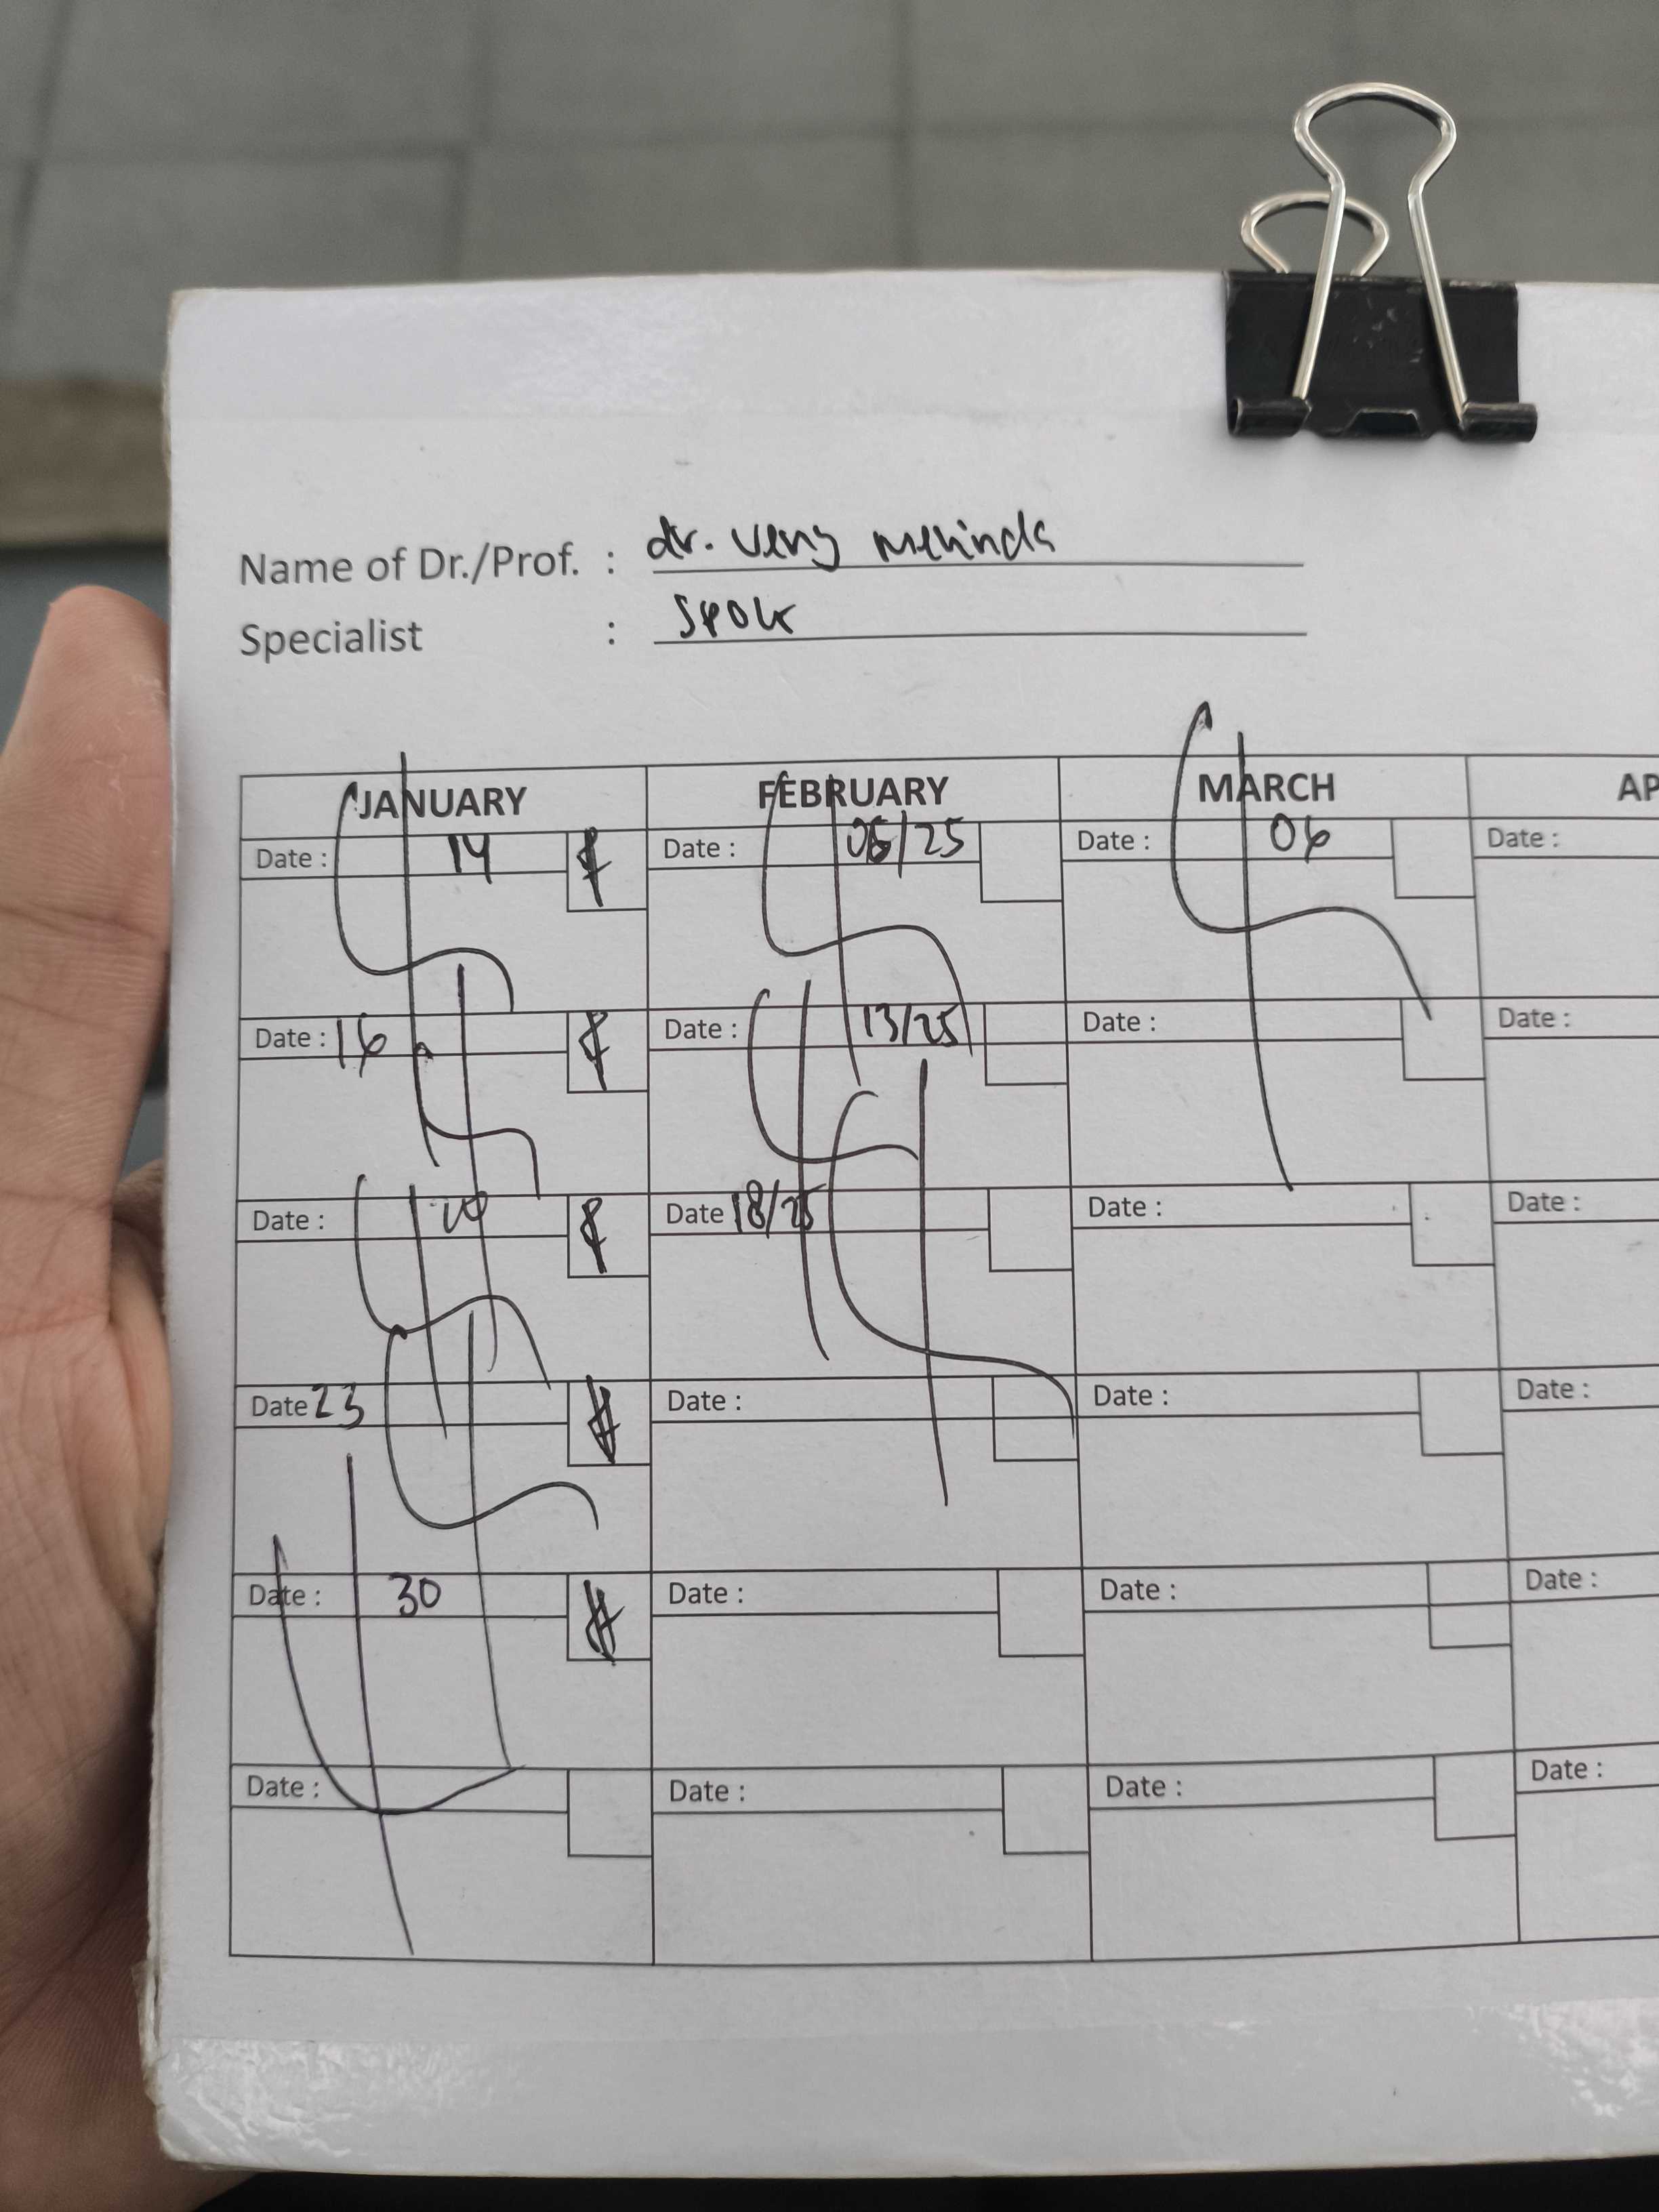 Name of Dr./Prof. : dr. Veny Melinda
Specialist : SPOK
JANUARY FEBRUARY MARCH AP
Date : 14 Date : 06/25 Date : 06 Date :
Date : 16 Date : 13/25 Date : Date :
Date : Date 18/25 Date : Date :
Date 23 Date : Date : Date :
Date : 30 Date : Date : Date :
Date : Date : Date : Date :